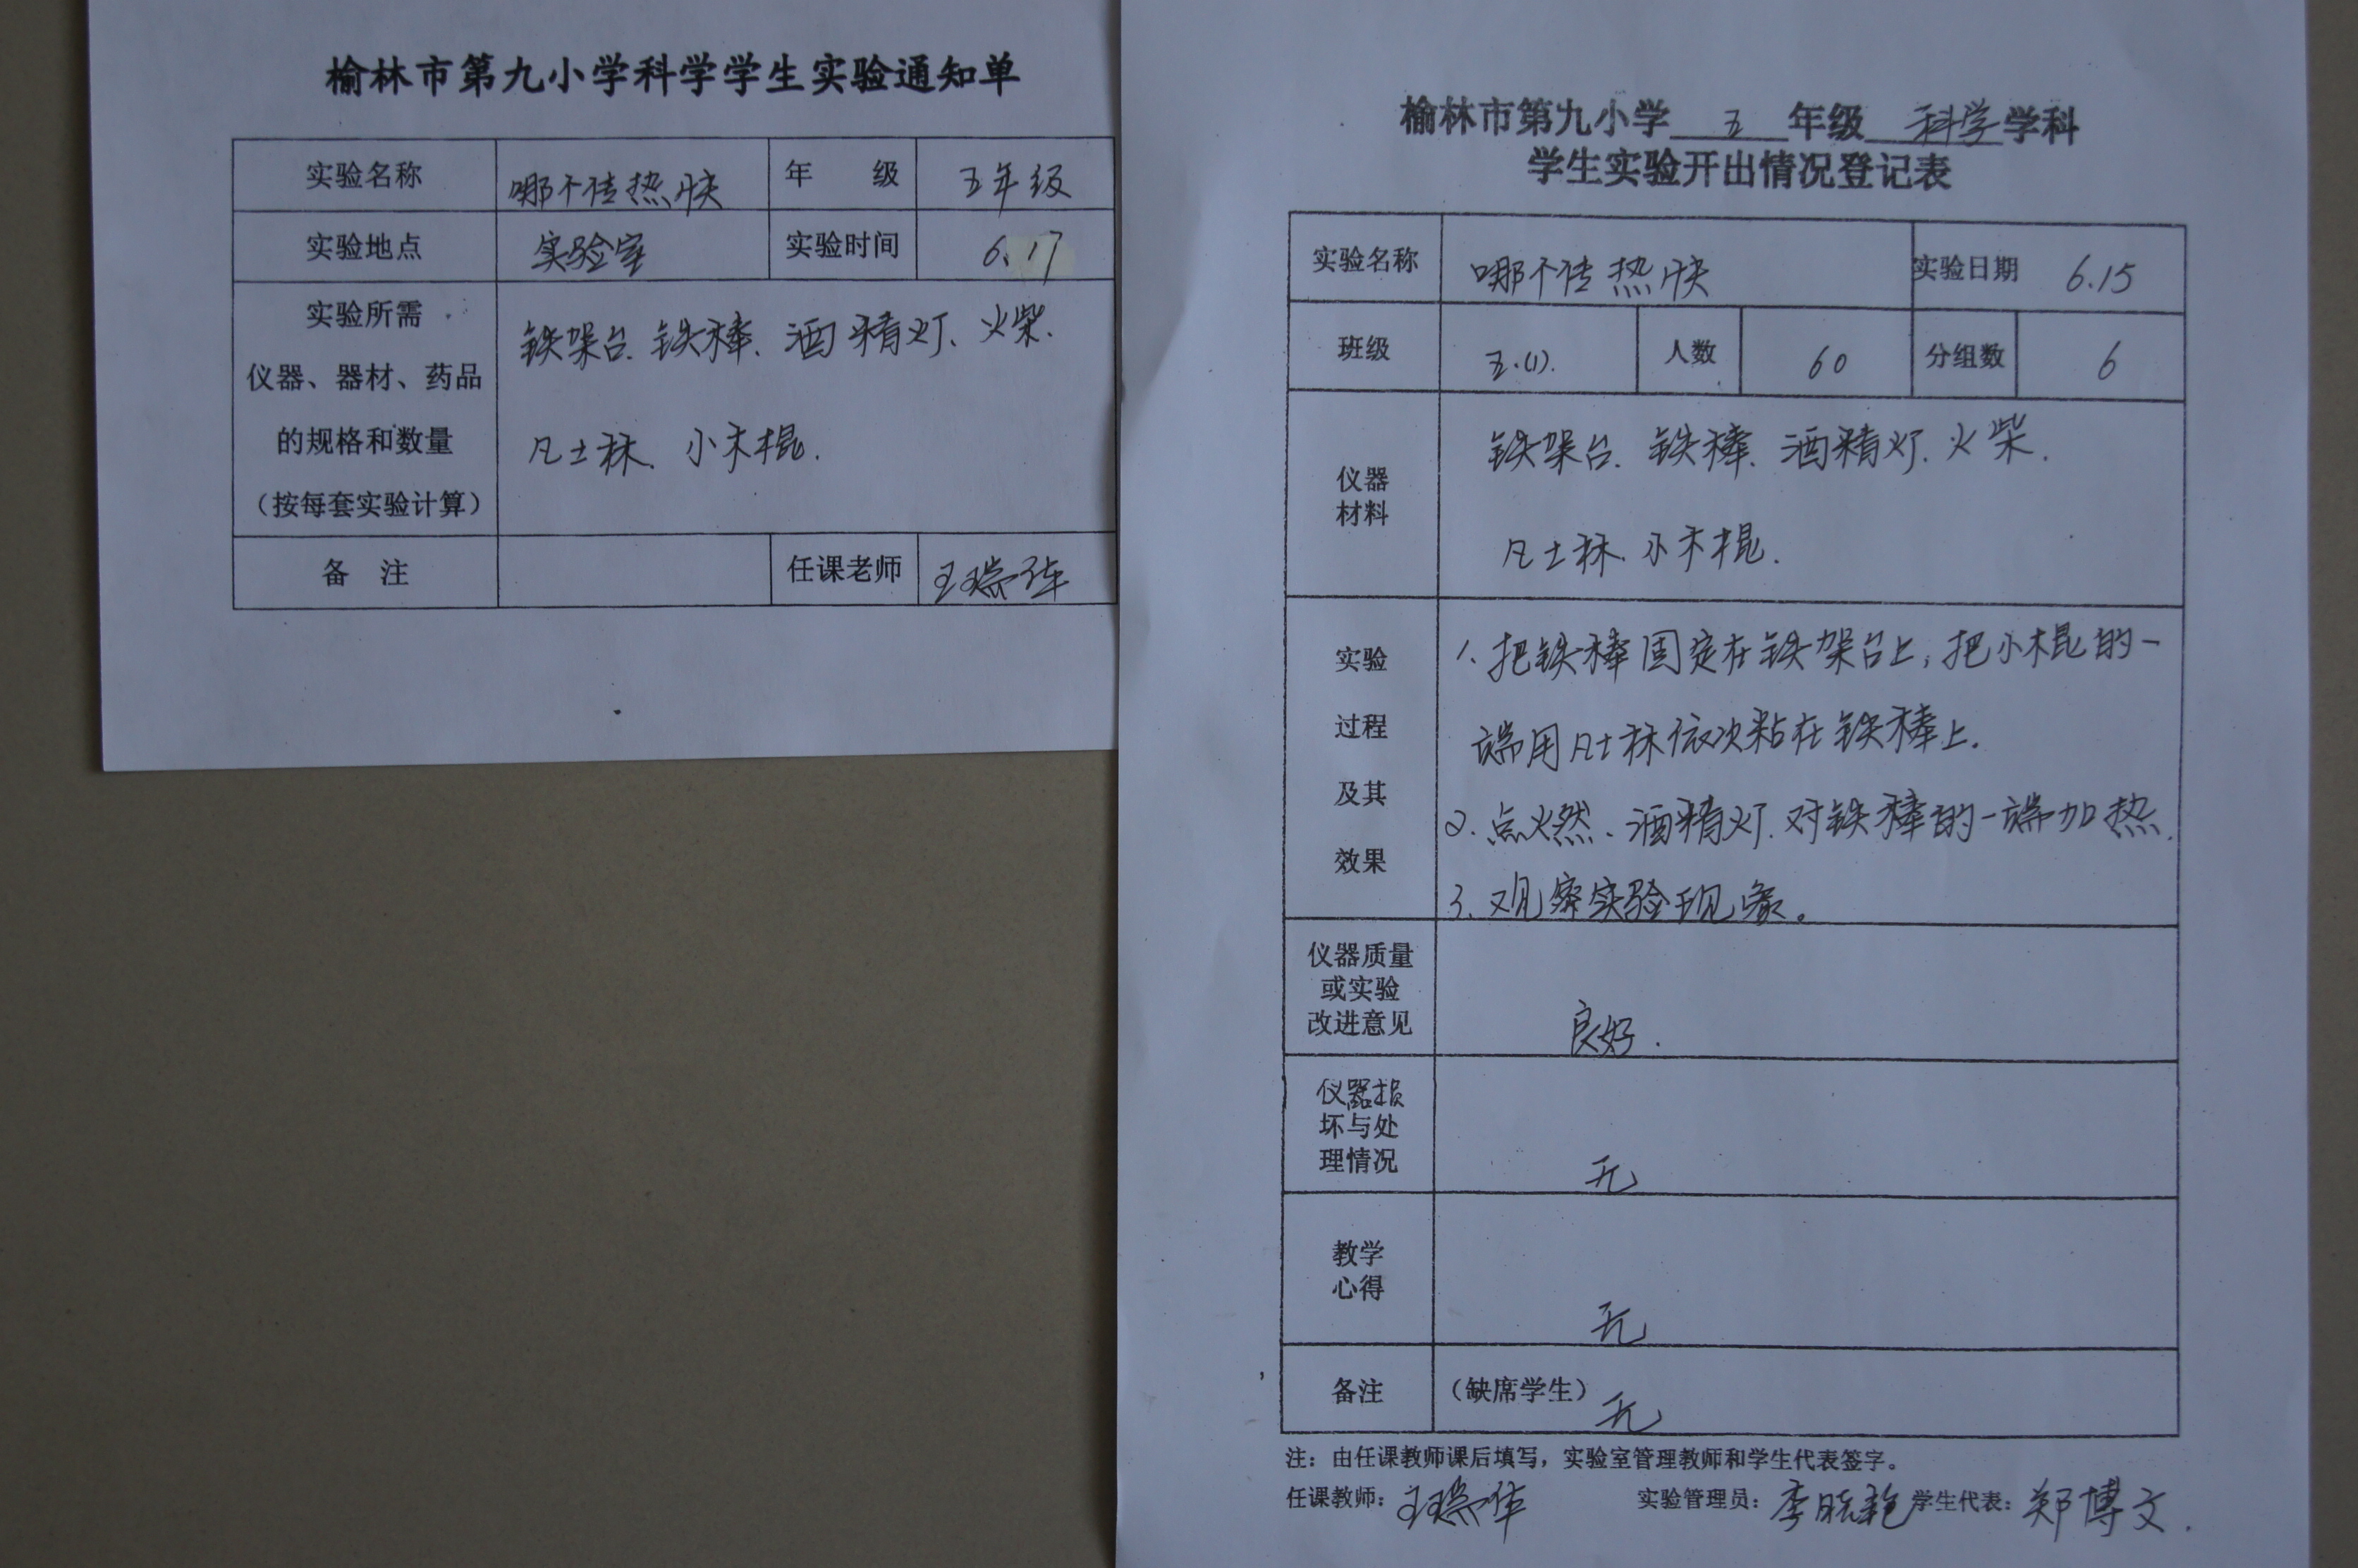 榆林市第九小学科学学生实验通知单
实验名称 哪个传热快 年 级 五年级
实验地点 实验室 实验时间 6.17
实验所需
仪器、器材、药品
的规格和数量
（按每套实验计算）
铁架台、铁棒、酒精灯、火柴、
凡士林、小木棍.
备 注 任课老师 王瑞华
榆林市第九小学 五 年级 科学 学科
学生实验开出情况登记表
实验名称 哪个传热快 实验日期 6.15
班级 五.(1). 人数 60 分组数 6
仪器
材料
铁架台、铁棒、酒精灯、火柴.
凡士林、小木棍.
实验
过程
及其
效果
1、把铁棒固定在铁架台上，把小棍的一
端用凡士林依次粘在铁棒上.
2、点火燃、酒精灯.对铁棒的一端加热.
3、观察实验现象。
仪器质量
或实验
改进意见
良好.
仪器损
坏与处
理情况
无
教学
心得
无
备注 （缺席学生） 无
注：由任课教师课后填写，实验室管理教师和学生代表签字。
任课教师：王瑞华 实验管理员：李晓艳 学生代表：郑博文.